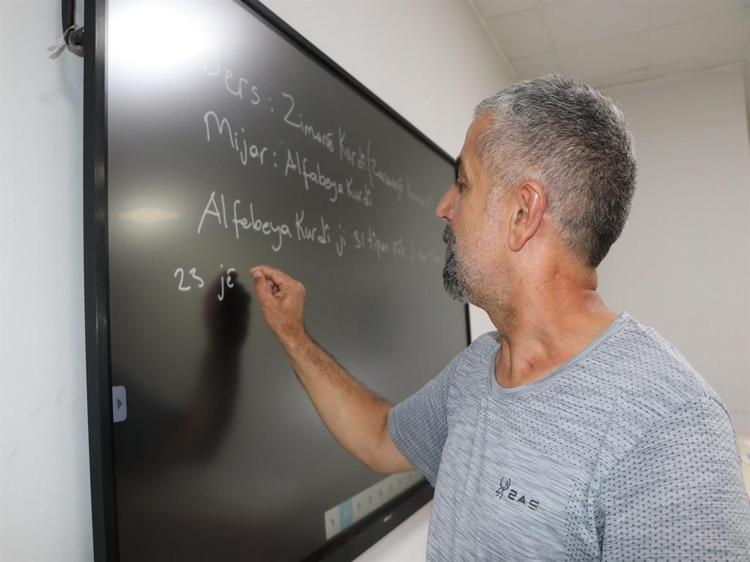 Ders: Zimanê Kurdî (
Mijar: Alfabeya Kurdî
Alfebeya Kurdî ji 31 tîpan pêk
23 jê
2AS